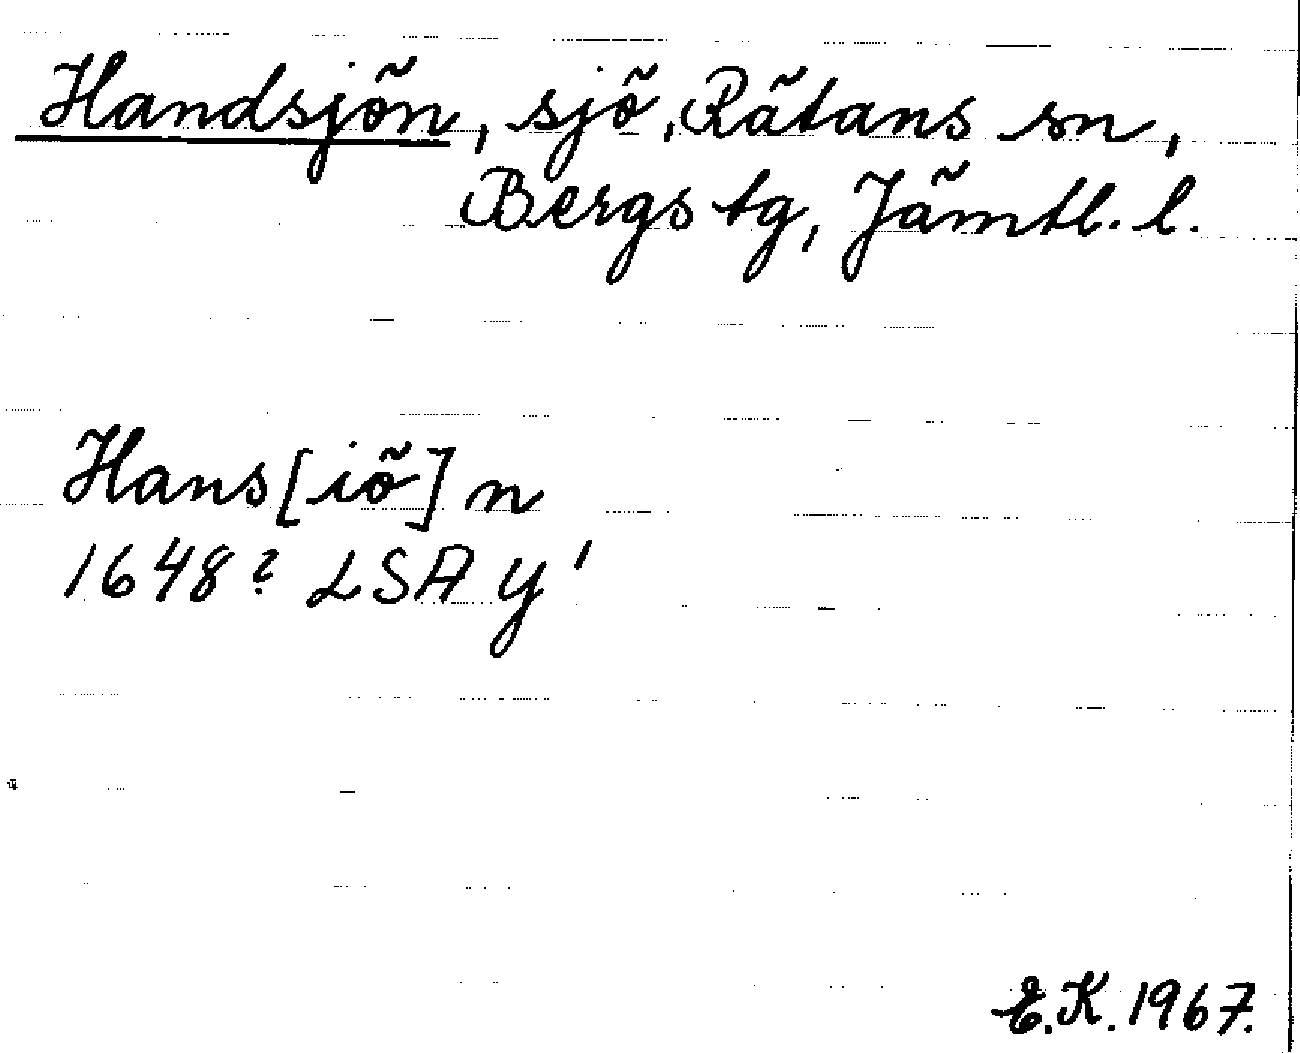 Handsjön, sjö, Rätans sn,
Bergs tg, Jämtl. l.
Hans[iö]n
1648? LSA y'
E.K. 1967.